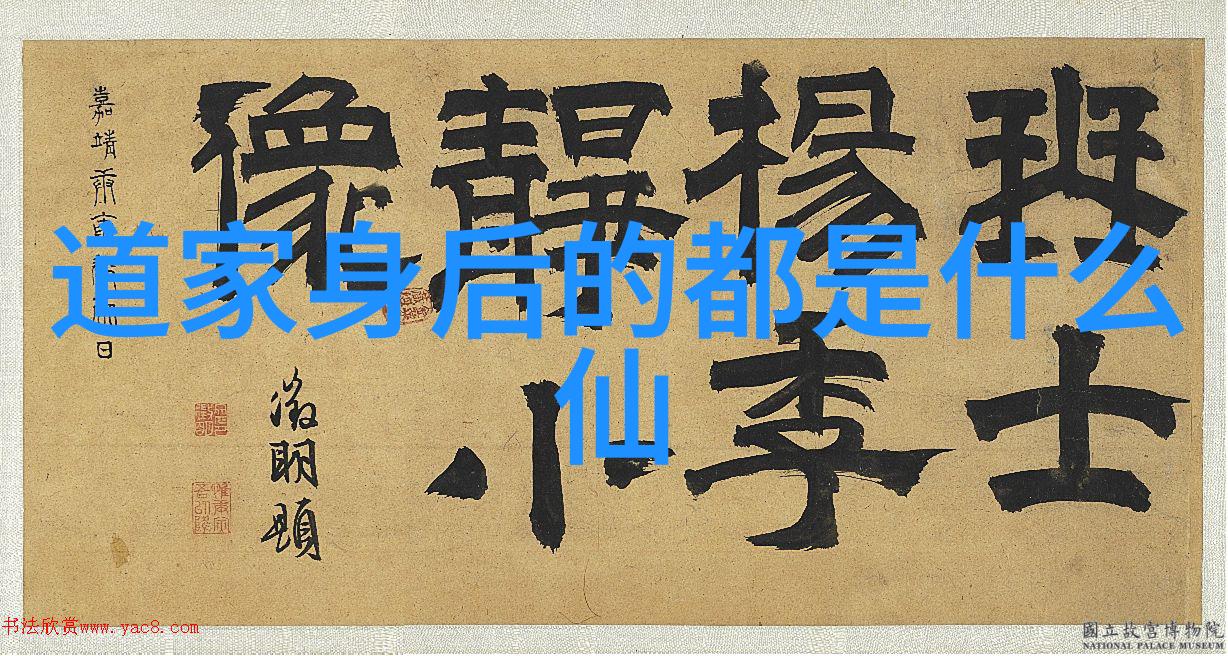 道家身后的都是什么
仙
士
楊季
靜小
像
嘉靖庚寅
日
徵明題
书法欣赏www.yac8.com
國立故宮博物院
NATIONAL PALACE MUSEUM